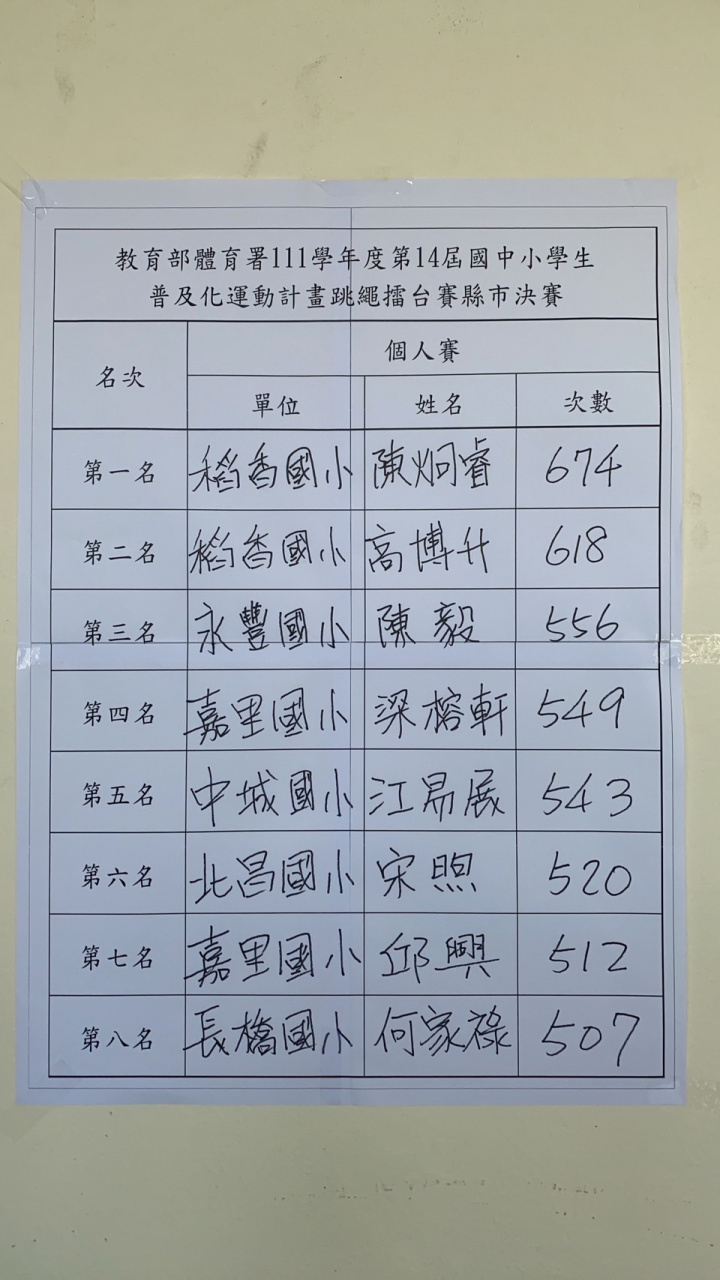 教育部體育署111學年度第14屆國中小學生
普及化運動計畫跳繩擂台賽縣市決賽
名次 個人賽
單位 姓名 次數
第一名 稻香國小 陳炯睿 674
第二名 稻香國小 高博升 618
第三名 永豐國小 陳毅 556
第四名 嘉里國小 梁榕軒 549
第五名 中城國小 江昜展 543
第六名 北昌國小 宋煦 520
第七名 嘉里國小 邱興 512
第八名 長橋國小 何家祿 507